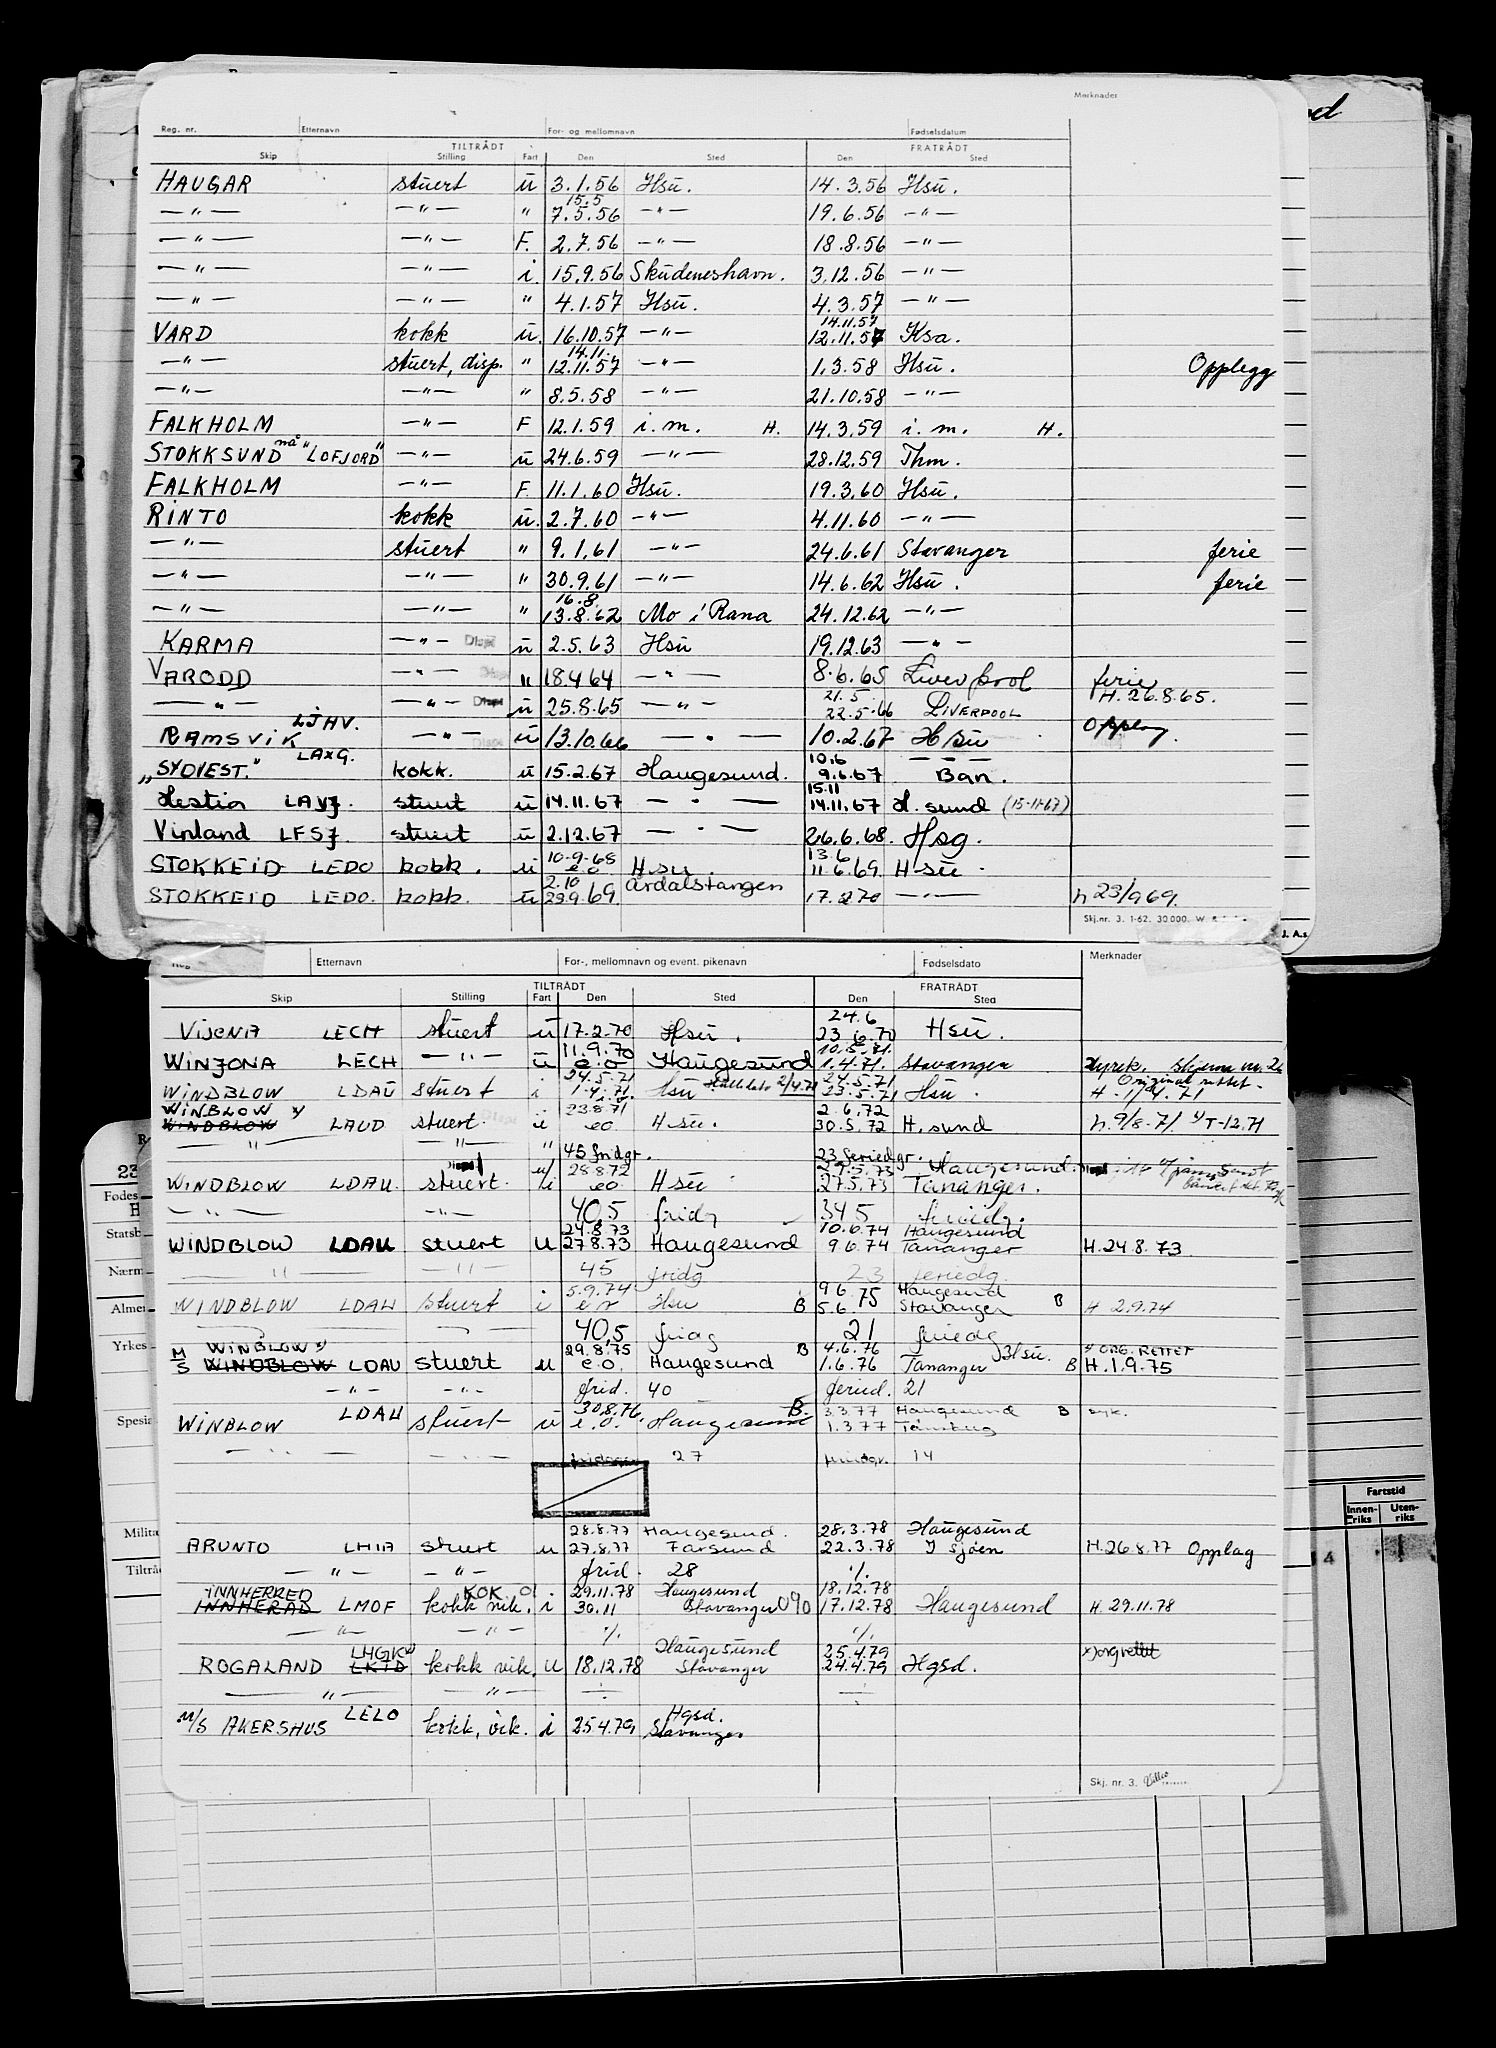 Merknader
Reg. nr. Etternavn For- og mellomnavn Fødselsdatum
TILTRÅDT FRATRÅDT
Skip Stilling Fart Den Sted Den Sted
HAUGAR stuert u 3.1.56 Hsu. 14.3.56 Hsu.
15.5
—"— —"— " 7.5.56 —"— 19.6.56 —"—
—"— —"— F. 2.7.56 —"— 18.8.56 —"—
—"— —"— i. 15.9.56 Skudeneshavn. 3.12.56 —"—
—"— —"— " 4.1.57 Hsu. 4.3.57 —"—
14.11.57
VARD kokk u. 16.10.57 —"— 12.11.57 Ksa.
14.11.
—"— stuert, disp. " 12.11.57 —"— 1.3.58 Hsu. Opplegg
—"— —"— " 8.5.58 —"— 21.10.58 —"—
FALKHOLM —"— F 12.1.59 i.m. H. 14.3.59 i.m. H.
STOKKSUND nå "LOFJORD" —"— u 24.6.59 —"— 28.12.59 Thm.
FALKHOLM —"— F. 11.1.60 Hsu. 19.3.60 Hsu.
RINTO kokk u. 2.7.60 —"— 4.11.60 —"—
—"— stuert " 9.1.61 —"— 24.6.61 Stavanger ferie
—"— —"— " 30.9.61 —"— 14.6.62 Hsu. ferie
16.8.
—"— —"— " 13.8.62 Mo i Rana 24.12.62 —"—
KARMA —"— Disp u 2.5.63 Hsu 19.12.63 —"—
VARODD —"— Disp " 18.4.64 —"— 8.6.65 Liverpool ferie
H. 26.8.65.
21.5
—"— —"— Disp u 25.8.65 —"— 22.5.66 LIVERPOOL
RAMSVIK LJHV. —"— Disp u 13.10.66 —"— 10.2.67 Hsu Opplag
10.6 — — —
„SYDVEST." LAXG. kokk. u 15.2.67 Haugesund. 9.6.67 Ban.
15.11
Hestia LAVJ. stuert u 14.11.67 —"— 14.11.67 H.sund (15-11-67)
Vinland LFSJ. stuert u 2.12.67 —"— 26.6.68. Hsg.
10.9.68 13.6
STOKKEID LEDO kokk. u e.o Hsu. 11.6.69 Hsu.
2.10 Årdalstangen
STOKKEID LEDO. kokk. u 29.9.69 17.2.70 —"— h 23/9 69.
Skj.nr. 3. 1-62. 30000. W.
J. A.s
Etternavn For-, mellomnavn og event. pikenavn Fødselsdato Merknader
TILTRÅDT FRATRÅDT
Skip Stilling Fart Den Sted Den Sted
24.6
VIJONA LECH stuert u 17.2.70 Hsu. 23.6.70 Hsu.
11.9.70 10.5.71.
WINJONA LECH —"— u e.o Haugesund 1.4.71. Stavanger
24.5.71 24.5.71 Original rettet.
WINDBLOW LDAU stuert i 1.4.71. Hsu 2/4.71 23.5.71 Hsu. H. 1/4.71
WINBLOW x) 23.8.71 2.6.72
WINDBLOW LAUD stuert. u eo. Hsu. 30.5.72 H.sund h. 9/8-71. x) T-12.71
—"— —"— " 45 fridgr. 23 feriedgr.
28.8.72 29.5.73 Haugesund.
WINDBLOW LDAU. stuert. u eo. Hsu 27.5.73 Tananger.
—"— —"— 40,5 fridg 34,5 feriedg.
24.8.73 10.6.74 Haugesund
WINDBLOW LDAU stuert u 27.8.73 Haugesund 9.6.74 Tananger H. 24.8.73.
—"— —"— 45 fridg 23 feriedg.
5.9.74 9.6. Haugesund
WINDBLOW LDAU stuert i e.o Hsu B 5.6. 75 Stavanger B H 2.9.74
40,5 fridg 21 feriedg
WINBLOW x) 29.8.75 B 4.6.76 Hsu. x) ORG. RETTET
M/S WINDBLOW LDAU stuert u e.o. Haugesund 1.6.76 Tananger B H. 1.9.75
—"— —"— frid. 40 feried. 21
30.8.76. B. 3.3.77 Haugesund B syk.
WINBLOW LDAU stuert u e.o. Haugesund 1.3.77 Tønsberg
—"— —"— fridager 27 feriedgr. 14
28.8.77 Haugesund. 28.3.78 Haugesund
ARUNTO LHIA stuert u 27.8.77 Farsund 22.3.78 I sjøen H. 26.8.77 Opplag
—"— —"— frid. 28 ·/.
INNHERRED KOK 29.11.78 Haugesund 18.12.78
INNHERAD LMOF kokk vik. i 30.11 Stavanger 090 17.12.78 Haugesund H. 29.11.78
—"— —"— ·/. ·/.
LHGK x) Haugesund 25.4.79 x) org rettet
ROGALAND LKTD kokk vik. u 18.12.78 Stavanger 24.4.79 Hgsd.
—"— —"— ÷ ÷
Hgsd.
M/S AKERSHUS LELO kokk, vik. i 25.4.79 Stavanger
Skj. nr. 3.
Fødes
Statsb
Nærm
Almer
Yrkes
Spesia
Milita
Tiltråd
Fartstid
Innen-riks Uten-riks